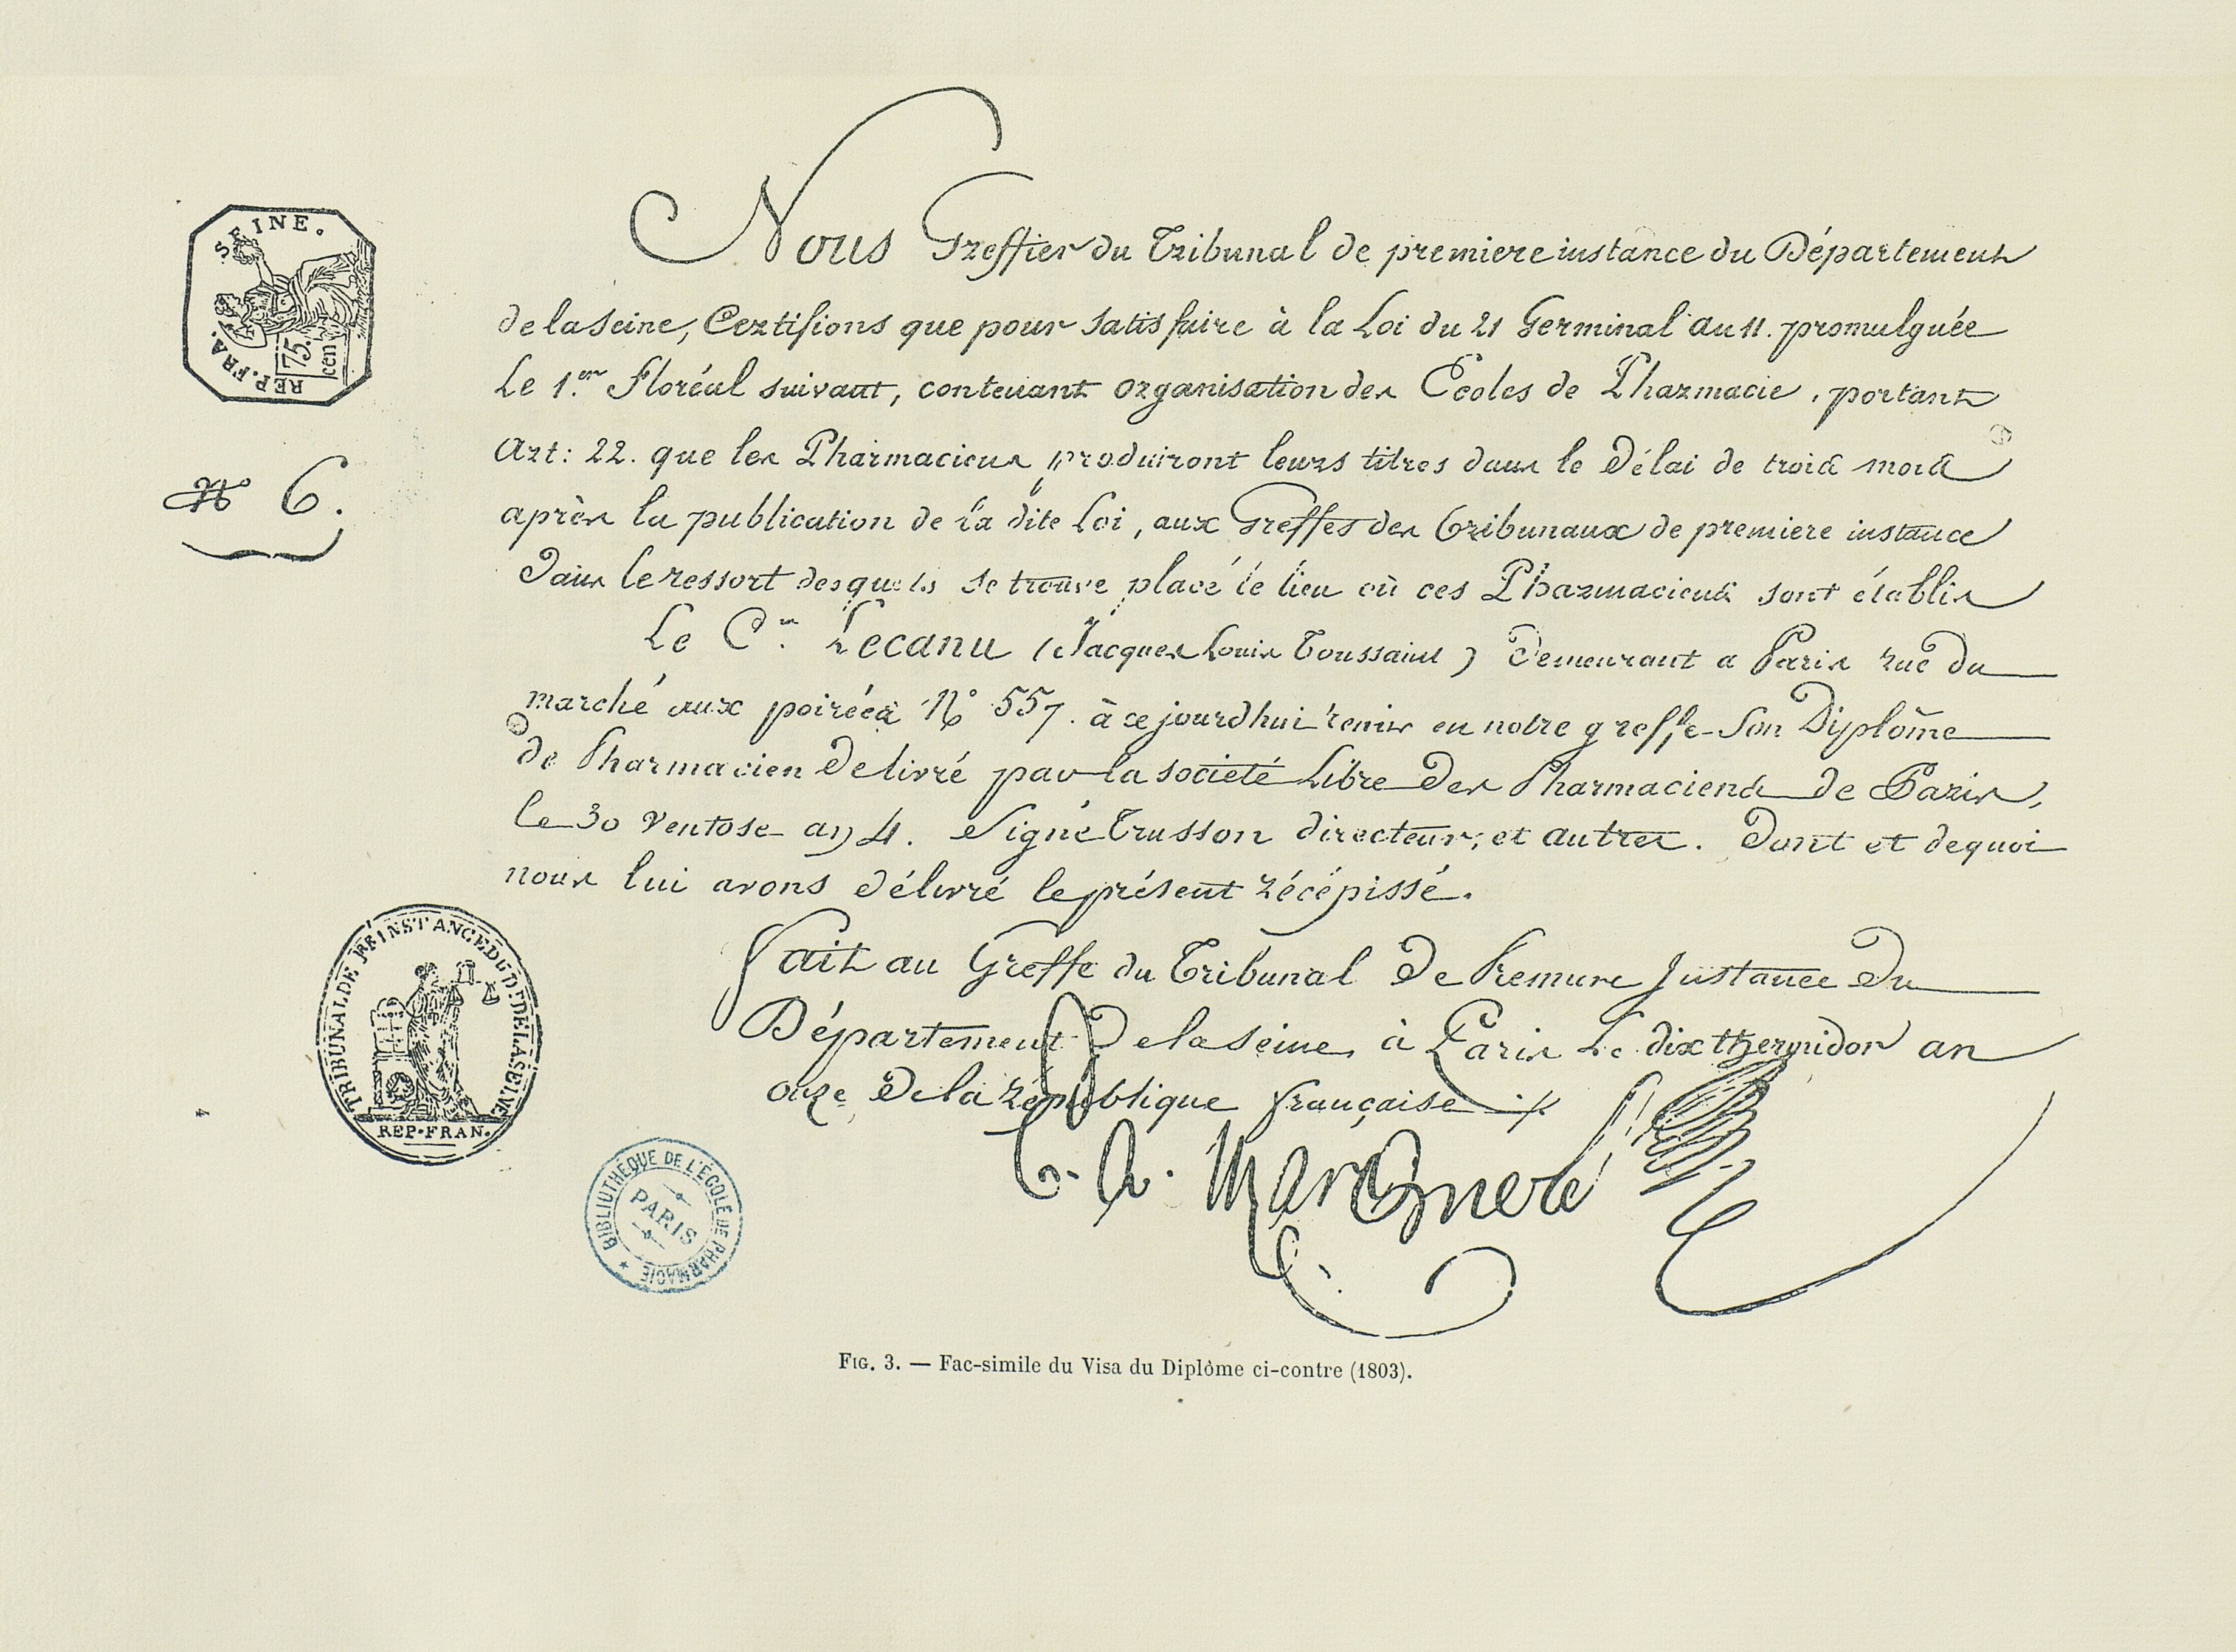 Nous Greffier du Tribunal de premiere instance du Département
de la Seine, Certifions que pour satisfaire à la Loi du 21 Germinal an 11. promulguée
Le 1.er Floréal suivant, contenant organisation des Ecoles de Pharmacie, portant
Art: 22. que les Pharmaciens produiront leurs titres dans le Délai de trois mois
après la publication de la dite Loi, aux Greffes des Tribunaux de premiere instance
Dans le ressort desquels se trouve placé le lieu où ces Pharmaciens sont établis
Le C.en Lecanu (Jacques Louis Toussaint) Demeurant a Paris rue du
marché aux poirées N° 557. à ce jourdhui remis en notre greffe Son Diplôme
de Pharmacien Delivré par la societé Libre Des Pharmaciens de Paris,
le 30 Ventose an 4. Signé Trusson directeur, et autres. Dont et dequoi
nous lui avons Délivré le présent récépissé.
Fait au Greffe du Tribunal De Premiere Instance Du
Département De la Seine, à Paris Le dix thermidor an
onze De la république française
SEINE.
REP. FRA.
75. cen
N° 6.
TRIBUNAL DE PRE INSTANCE DU DT DE LA SEINE
REP. FRAN.
BIBLIOTHÈQUE DE L'ÉCOLE DE PHARMACIE
PARIS
FIG. 3. — Fac-simile du Visa du Diplôme ci-contre (1803).